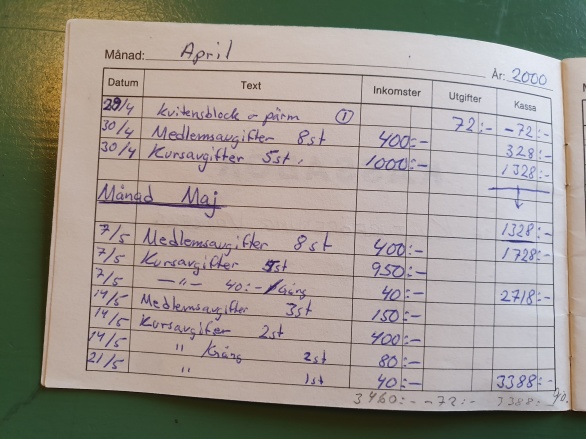 Månad: April År: 2000
Datum Text Inkomster Utgifter Kassa
29/4 Kvitensblock o pärm ① 72:- -72:-
30/4 Medlemsavgifter 8st 400:- 328:-
30/4 Kursavgifter 5st. 1000:- 1328:-
Månad Maj
1328:-
7/5 Medlemsavgifter 8st 400:- 1728:-
7/5 Kursavgifter 5st 950:-
7/5 -"- 40:-/Gång 40:- 2718:-
14/5 Medlemsavgifter 3st 150:-
14/5 Kursavgifter 2st 400:-
14/5 " /Gång 2st 80:-
21/5 " 1st 40:- 3388:-
3460:- -72:- 3388:-